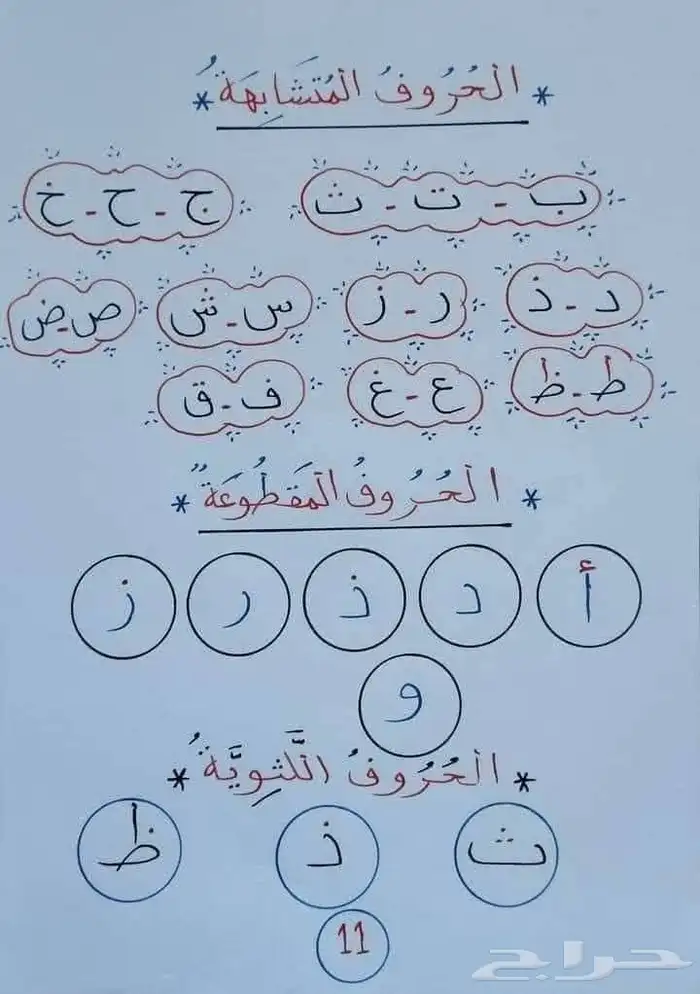 * الْحُرُوفُ الْمُتَشَابِهَةُ *
ب - ت - ث
ج - ح - خ
د - ذ
ر - ز
س - ش
ص - ض
ط - ظ
ع - غ
ف - ق
* الْحُرُوفُ الْمَقْطُوعَةُ *
أ د ذ ر ز
و
* الْحُرُوفُ اللَّثَوِيَّةُ *
ث ذ ظ
11
حراج